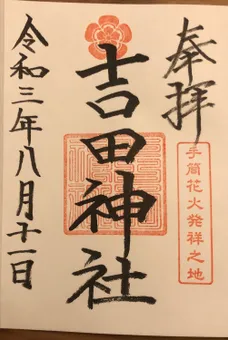 奉拝
手筒花火発祥之地
吉田神社
令和三年八月十一日